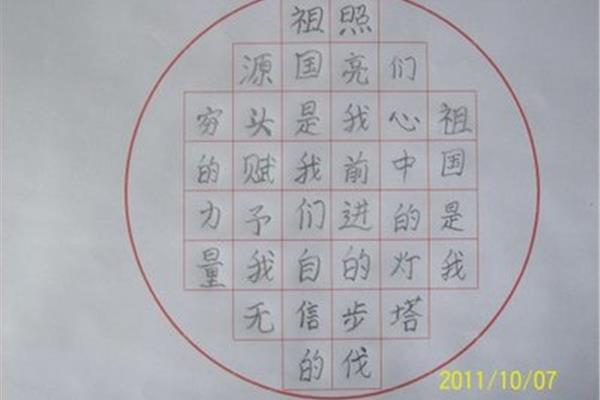 祖国是我
们心中的灯塔
照亮我前进的步伐
祖国是我们自信的
源头赋予我无
穷的力量
2011/10/07